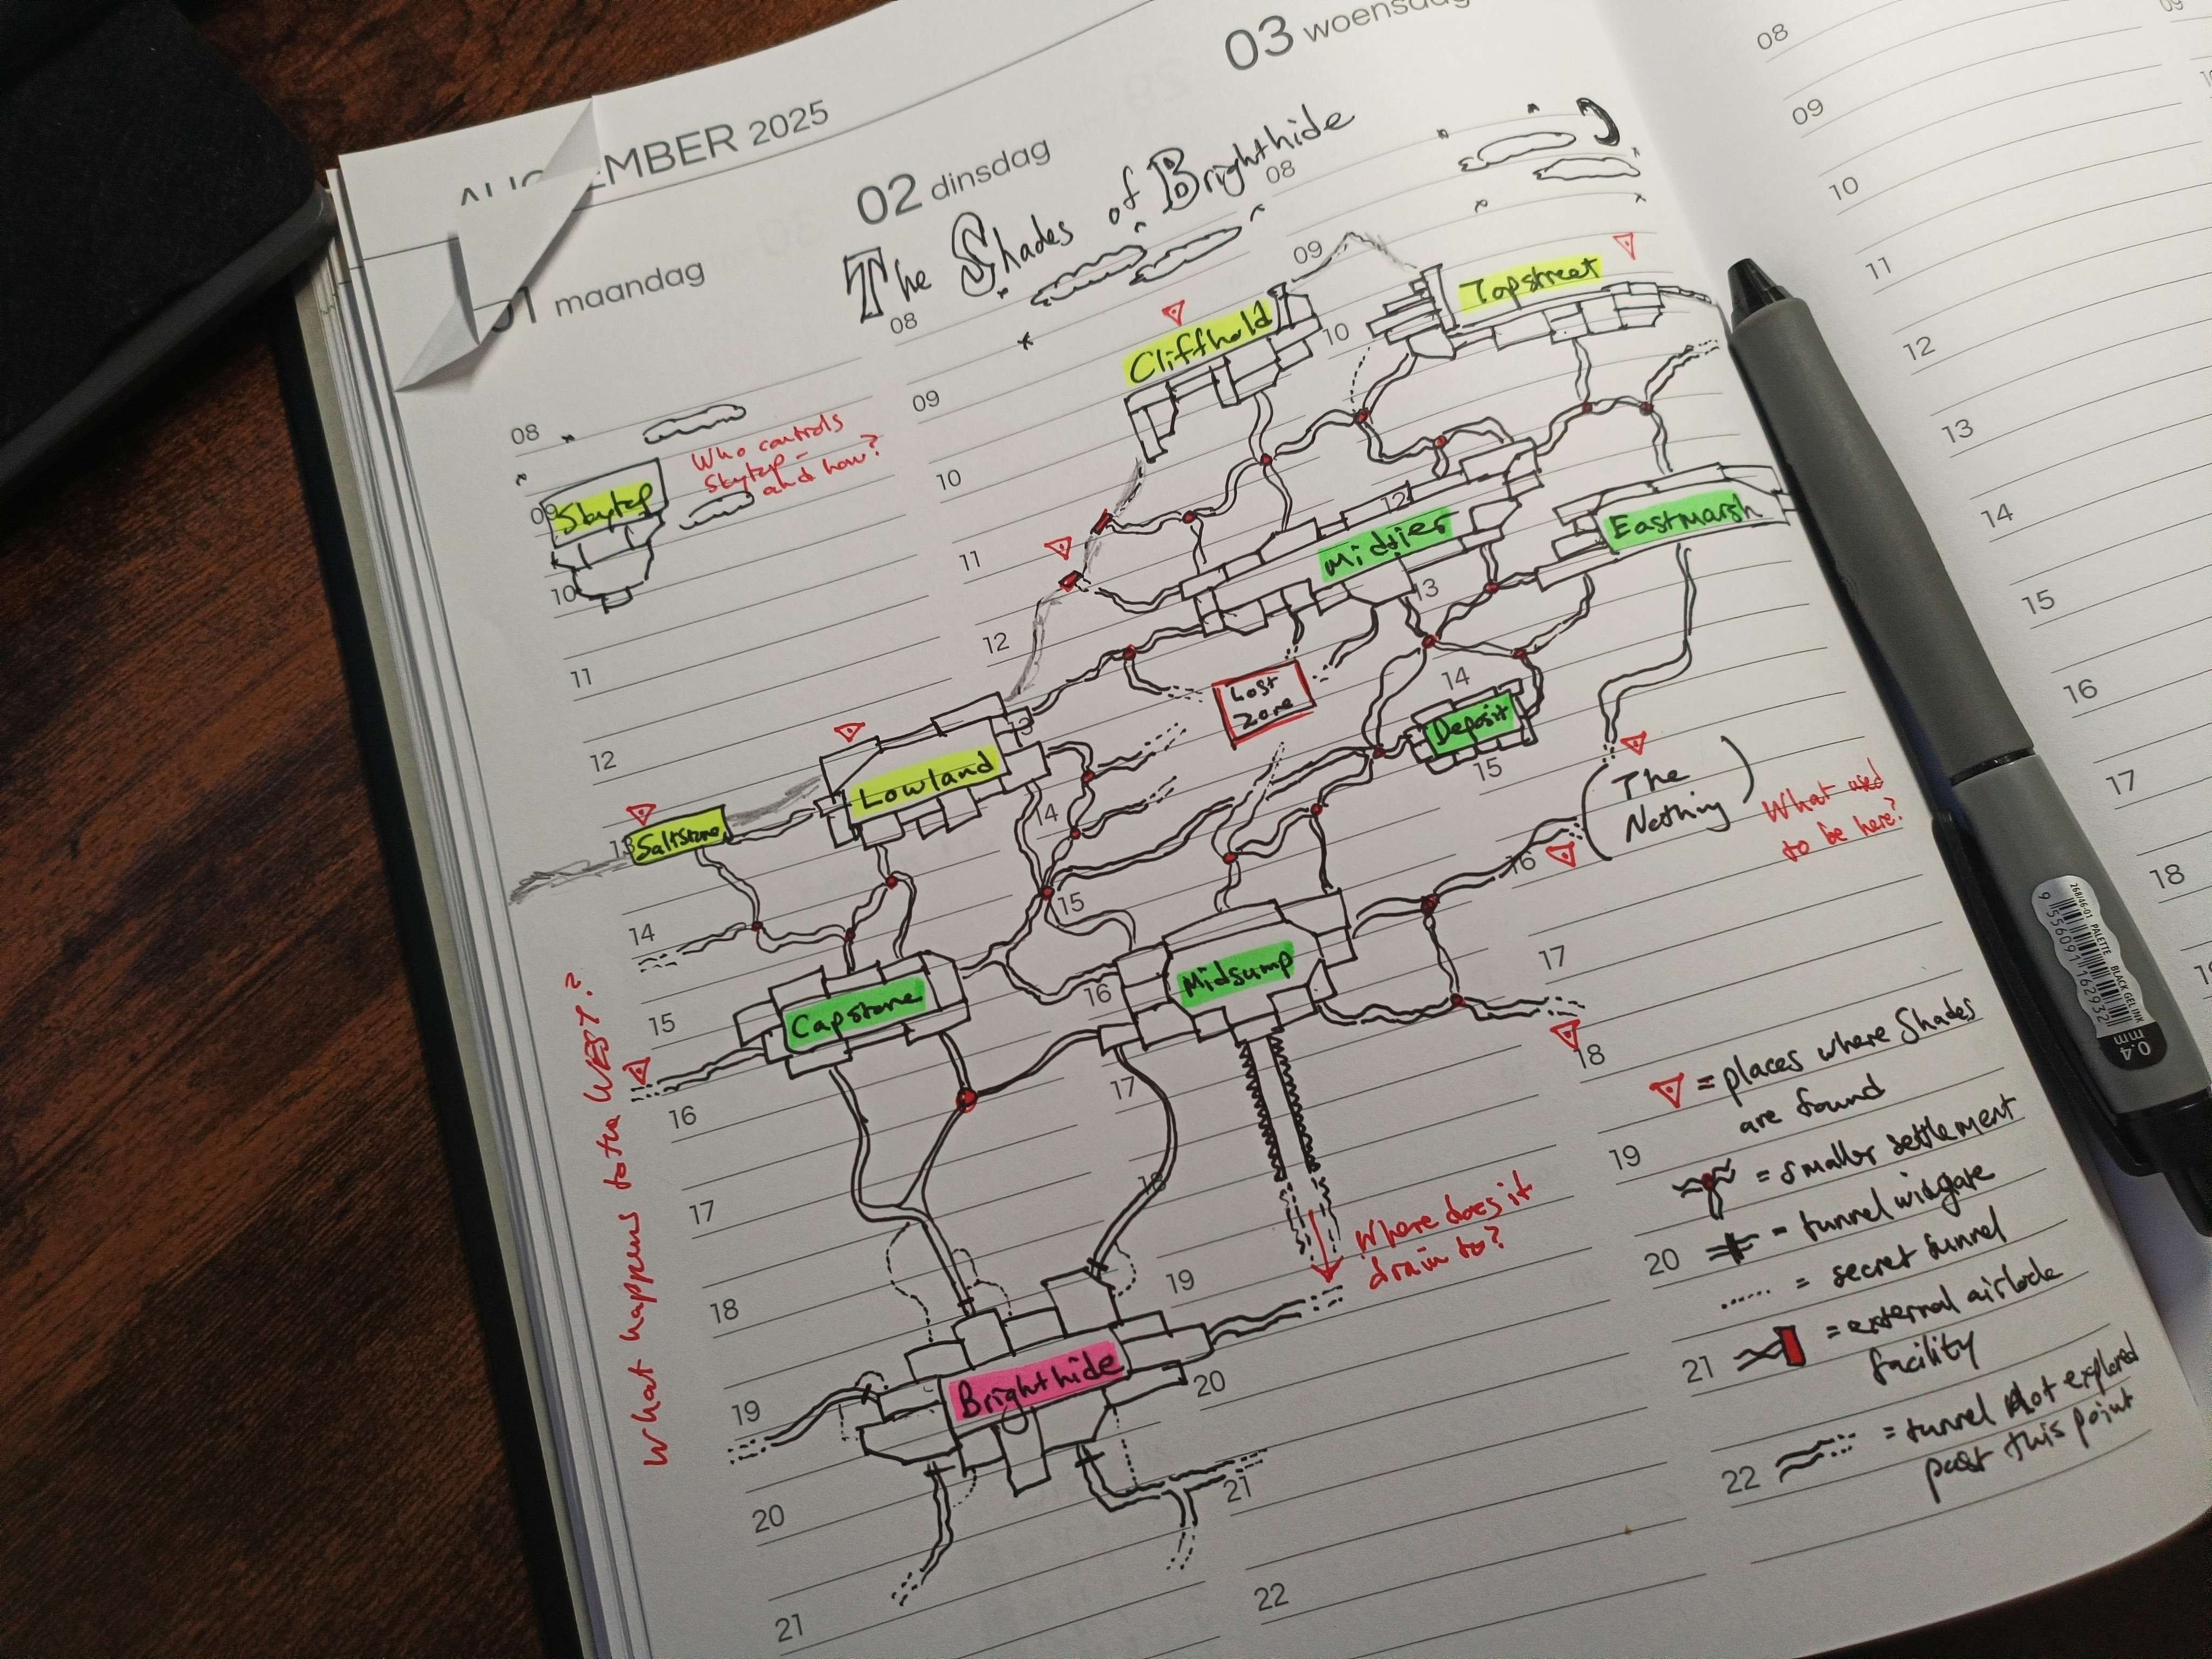 EMBER 2025
01 maandag
02 dinsdag
03 woensdag
The Shades of Brighthide
08
09
10
11
12
14
15
16
17
18
19
20
21
08
09
10
11
12
13
14
15
16
17
18
19
20
21
22
08
09
10
12
13
14
15
16
17
18
19
20
21
22
08
09
10
11
12
13
14
15
16
17
18
Skytop
Who controls
Skytop -
and how?
Cliffhold
Topstreet
Midtier
Eastmarsh
Lost
Zone
Deposit
Lowland
Saltstone
(The
Nothing)
What used
to be here?
Capstone
Midsump
What happens to the WEST?
Where does it
drain to?
Brighthide
= places where Shades
are found
= smaller settlement
= tunnel widgate
= secret tunnel
= external airlock
facility
= tunnel not explored
past this point
268/46-01 PALETTE BLACK GEL INK
9 556091 162932
0.4
mm